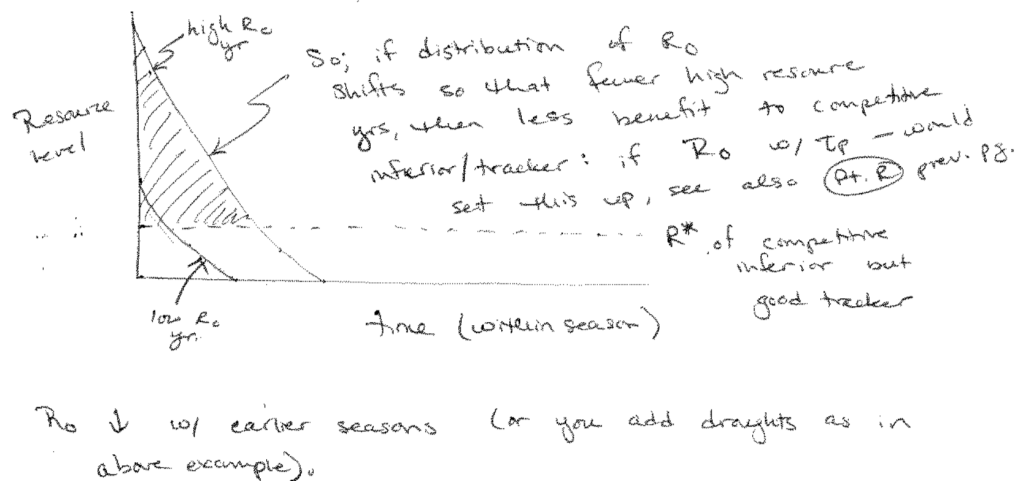 high R₀
yr
So; if distribution of R₀
shifts so that fewer high resource
yrs, then less benefit to competitive
inferior/tracker: if R₀ w/ τp – would
set this up, see also pt. R prev. pg.
Resource
level
R* of competitive
inferior but
good tracker
low R₀
yr.
time (within season)
R₀ ↓ w/ earlier seasons (or you add draughts as in
above example).